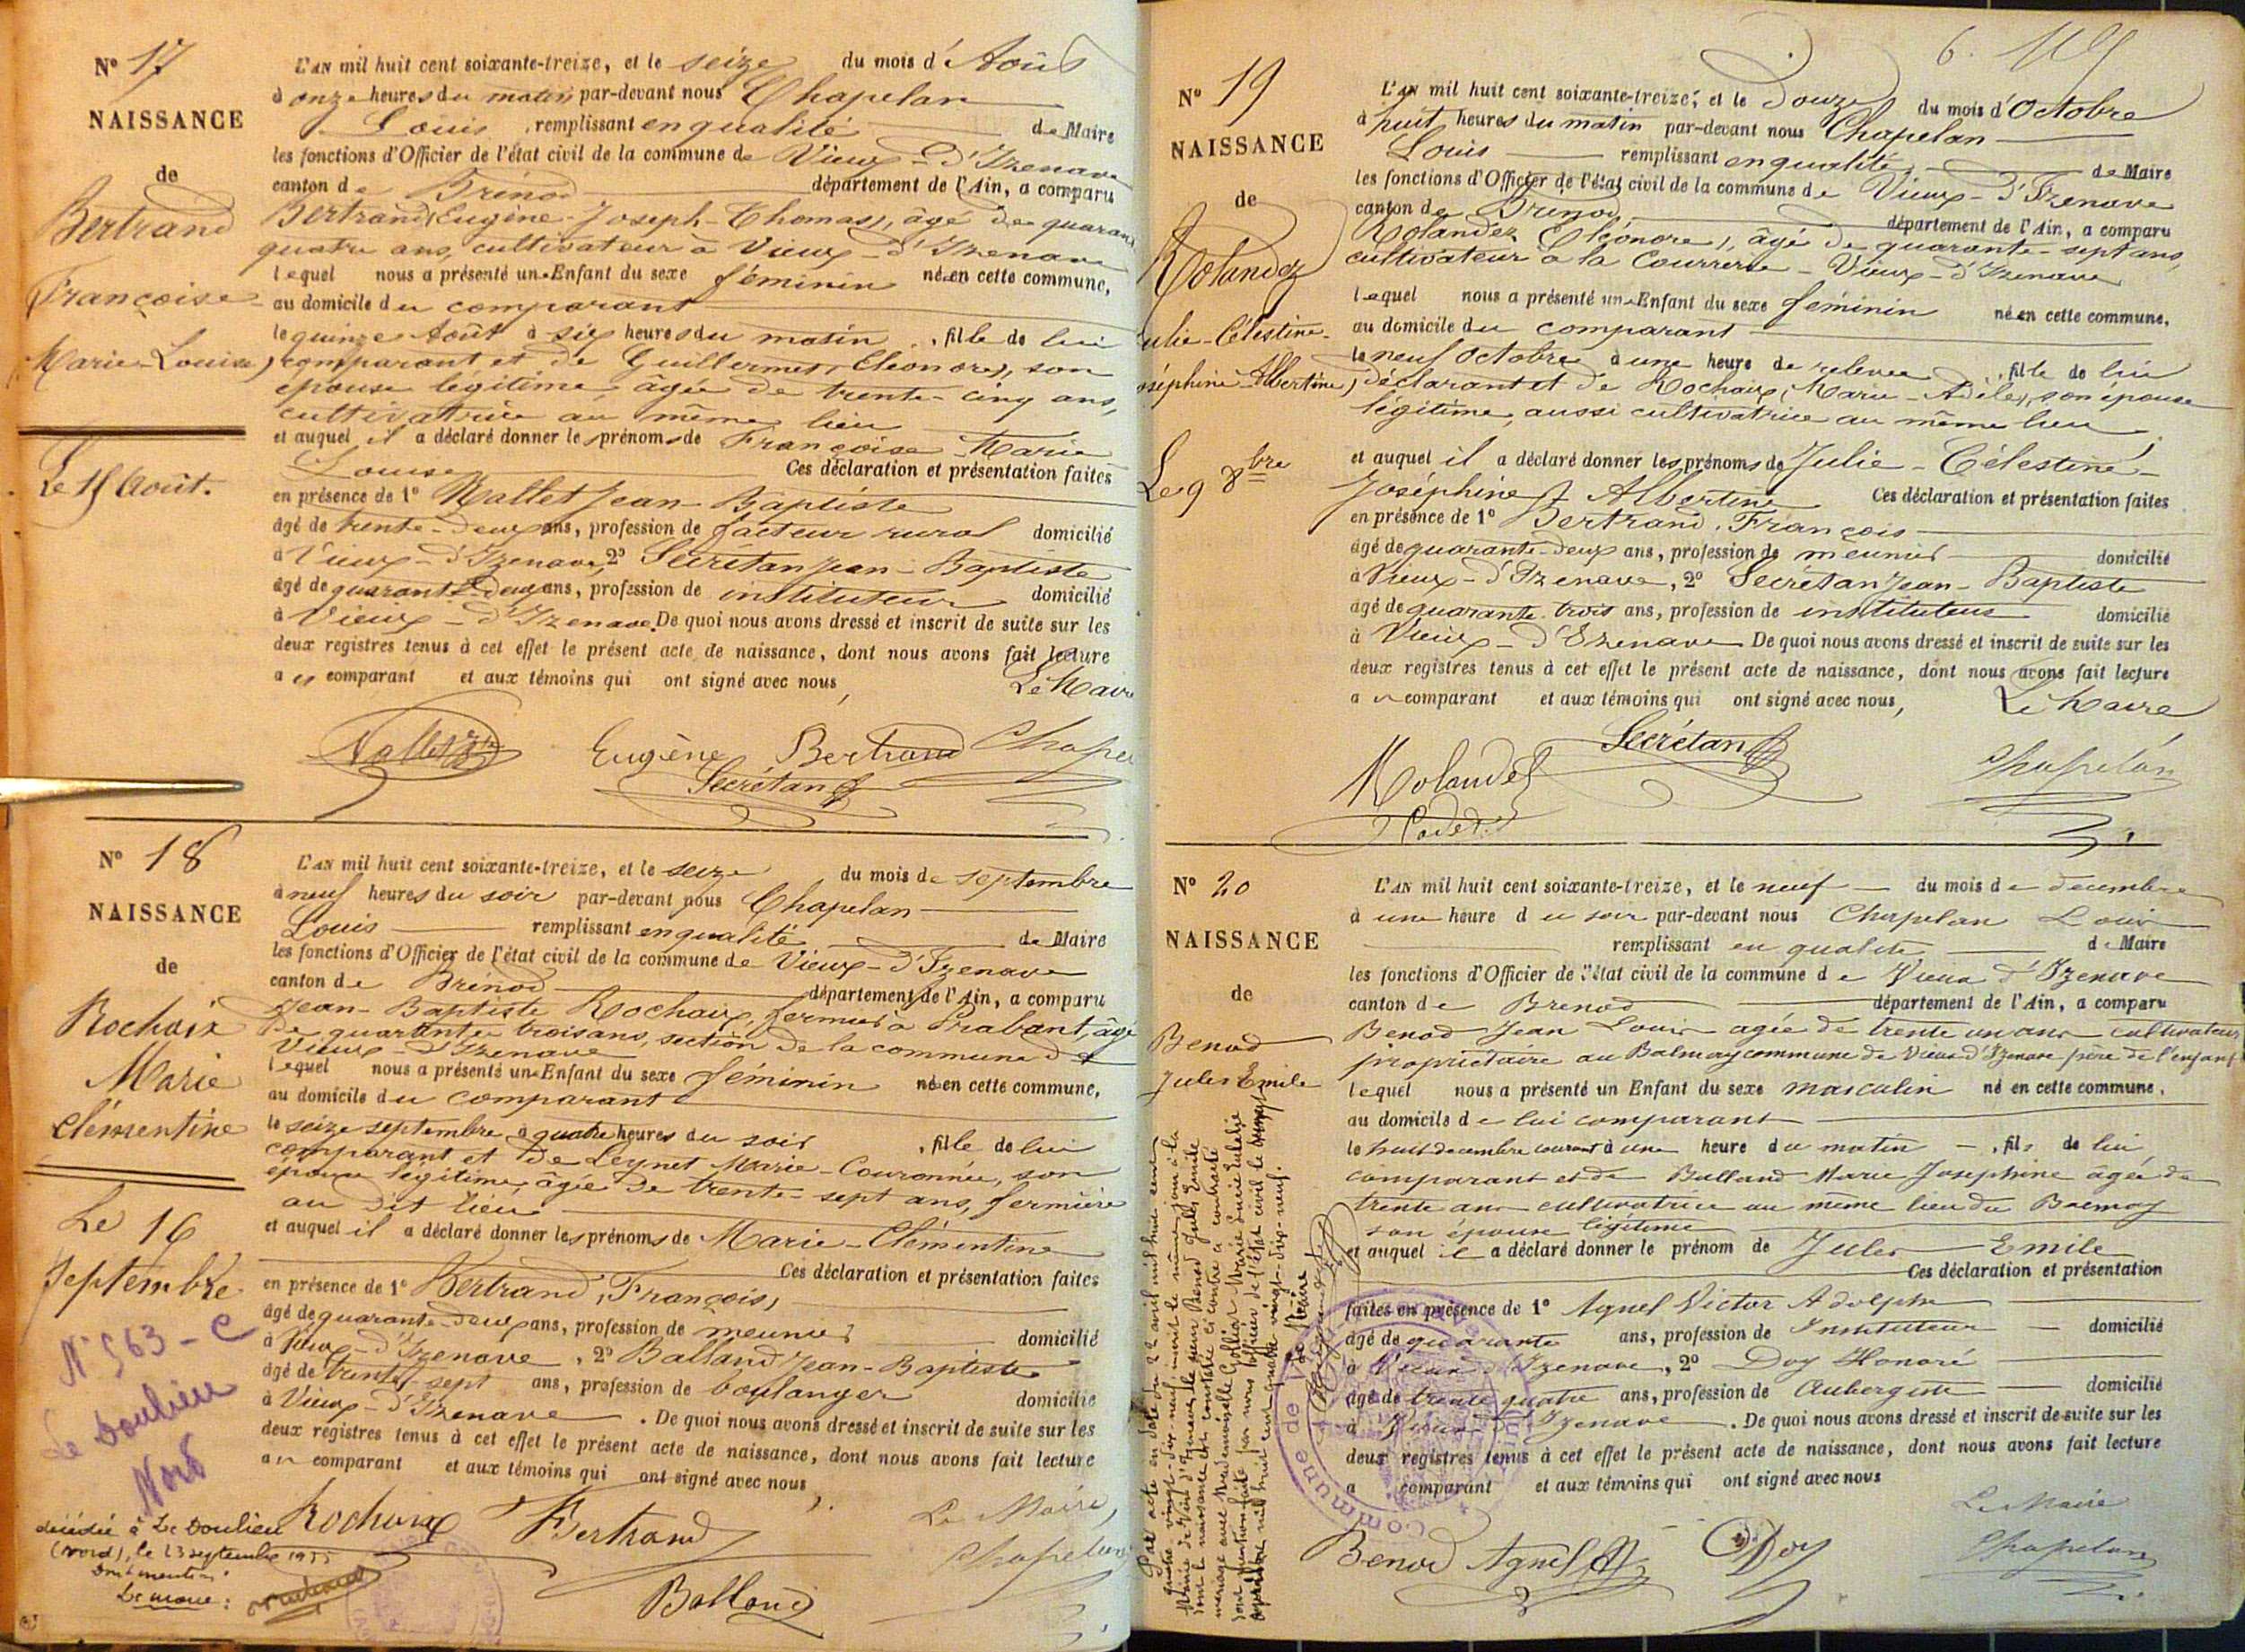 N° 17
NAISSANCE
de
Bertrand
Françoise
Marie-Louise
Le 15 Août.
L'AN mil huit cent soixante-treize, et le seize du mois d'Août
à onze heures du matin par-devant nous Chapelan
Louis remplissant en qualité de Maire
les fonctions d'Officier de l'état civil de la commune de Vieux-d'Izenave
canton de Brénod département de l'Ain, a comparu
Bertrand (Eugène-Joseph-Thomas), âgé de quarante
quatre ans, cultivateur à Vieux-d'Izenave
lequel nous a présenté une Enfant du sexe féminin née en cette commune,
au domicile du comparant
le quinze Août à six heures du matin, fille de lui
comparant et de Guillermet (Eléonore), son
épouse légitime, âgée de trente-cinq ans,
cultivatrice au même lieu
et auquel il a déclaré donner les prénoms de Françoise Marie
Louise Ces déclaration et présentation faites
en présence de 1° Nallet Jean Baptiste
âgé de trente-deux ans, profession de facteur rural domicilié
à Vieux-d'Izenave, 2° Secrétan Jean-Baptiste
âgé de quarante-deux ans, profession de instituteur domicilié
à Vieux-d'Izenave. De quoi nous avons dressé et inscrit de suite sur les
deux registres tenus à cet effet le présent acte de naissance, dont nous avons fait lecture
au comparant et aux témoins qui ont signé avec nous,
Le Maire
Nallet Eugène Bertrand
Secrétan
N° 18
NAISSANCE
de
Rochaix
Marie
Clémentine
Le 16
Septembre
N° 563-C
Le Doulieu
Nord
décédée à Le Doulieu
(Nord), le 23 septembre 1955
Dont mention
Le maire:
L'AN mil huit cent soixante-treize, et le seize du mois de septembre
à neuf heures du soir par-devant nous Chapelan
Louis remplissant en qualité de Maire
les fonctions d'Officier de l'état civil de la commune de Vieux-d'Izenave
canton de Brénod département de l'Ain, a comparu
Jean-Baptiste Rochaix, fermier à Prabant, âgé
de quarante trois ans, section de la commune de
Vieux-d'Izenave
lequel nous a présenté une Enfant du sexe féminin née en cette commune,
au domicile du comparant
le seize septembre à quatre heures du soir, fille de lui
comparant et de Leynet Marie-Couronnée, son
épouse légitime, âgée de trente-sept ans, fermière
au dit lieu
et auquel il a déclaré donner les prénoms de Marie-Clémentine
Ces déclaration et présentation faites
en présence de 1° Bertrand, François,
âgé de quarante-deux ans, profession de meunier domicilié
à Vieux-d'Izenave, 2° Balland Jean-Baptiste
âgé de trente-sept ans, profession de boulanger domicilié
à Vieux-d'Izenave. De quoi nous avons dressé et inscrit de suite sur les
deux registres tenus à cet effet le présent acte de naissance, dont nous avons fait lecture
au comparant et aux témoins qui ont signé avec nous,
Rochaix Bertrand Le Maire,
Chapelan
Balland
6.
N° 19
NAISSANCE
de
Rolandez
Julie-Célestine-
Joséphine Albertine
Le 9 8bre
L'AN mil huit cent soixante-treize, et le Douze du mois d'Octobre
à huit heures du matin par-devant nous Chapelan
Louis remplissant en qualité de Maire
les fonctions d'Officier de l'état civil de la commune de Vieux-d'Izenave
canton de Brénod, département de l'Ain, a comparu
Rolandez (Eléonore), âgé de quarante-sept ans,
cultivateur à la Courrerie-Vieux-d'Izenave
lequel nous a présenté une Enfant du sexe féminin née en cette commune,
au domicile du comparant
le neuf Octobre à une heure de relevée, fille de lui
déclarant et de Rochaix (Marie-Adèle), son épouse
légitime, aussi cultivatrice au même lieu
et auquel il a déclaré donner les prénoms de Julie-Célestine-
Joséphine Albertine Ces déclaration et présentation faites
en présence de 1° Bertrand, François
âgé de quarante-deux ans, profession de meunier domicilié
à Vieux-d'Izenave, 2° Secrétan Jean-Baptiste
âgé de quarante-trois ans, profession de instituteur domicilié
à Vieux-d'Izenave De quoi nous avons dressé et inscrit de suite sur les
deux registres tenus à cet effet le présent acte de naissance, dont nous avons fait lecture
au comparant et aux témoins qui ont signé avec nous,
Le Maire
Secrétan
Rolandez Chapelan
Cadet
N° 20
NAISSANCE
de
Benod
Jules Emile
Par acte en date du 22 avril mil huit cent
quatre vingt-dix-neuf, inscrit le même jour à la
Mairie de Vieu d'Izenave, le sieur Benod Jules Emile
dont la naissance est constatée ci contre a contracté
mariage avec Mademoiselle Goiffon Marie Lucie Eulalie
dont mention faite par nous officier de l'état civil le vingt
mil huit cent quatre vingt-dix-neuf.
Le Maire
L'AN mil huit cent soixante-treize, et le neuf du mois de decembre
à une heure du soir par-devant nous Chapelan Louis
remplissant en qualité de Maire
les fonctions d'Officier de l'état civil de la commune de Vieux d'Izenave
canton de Brenod département de l'Ain, a comparu
Benod Jean Louis agée de trente un ans cultivateur
propriétaire au Balmay commune de Vieux d'Izenave père de l'enfant
lequel nous a présenté un Enfant du sexe masculin né en cette commune,
au domicile de lui comparant
le huit decembre courant à une heure du matin, fils de lui
comparant et de Balland Marie Josephine agée de
trente ans cultivatrice au même lieu du Balmay
son épouse légitime
et auquel il a déclaré donner le prénom de Jules Emile
Ces déclaration et présentation
faites en présence de 1° Agnel Victor Adolphe
âgé de quarante ans, profession de Instituteur domicilié
à Vieux d'Izenave, 2° Doy Honoré
âgé de trente quatre ans, profession de Aubergiste domicilié
à Vieux d'Izenave. De quoi nous avons dressé et inscrit de suite sur les
deux registres tenus à cet effet le présent acte de naissance, dont nous avons fait lecture
a comparant et aux témoins qui ont signé avec nous
Le Maire
Benod Agnel Doy Chapelan